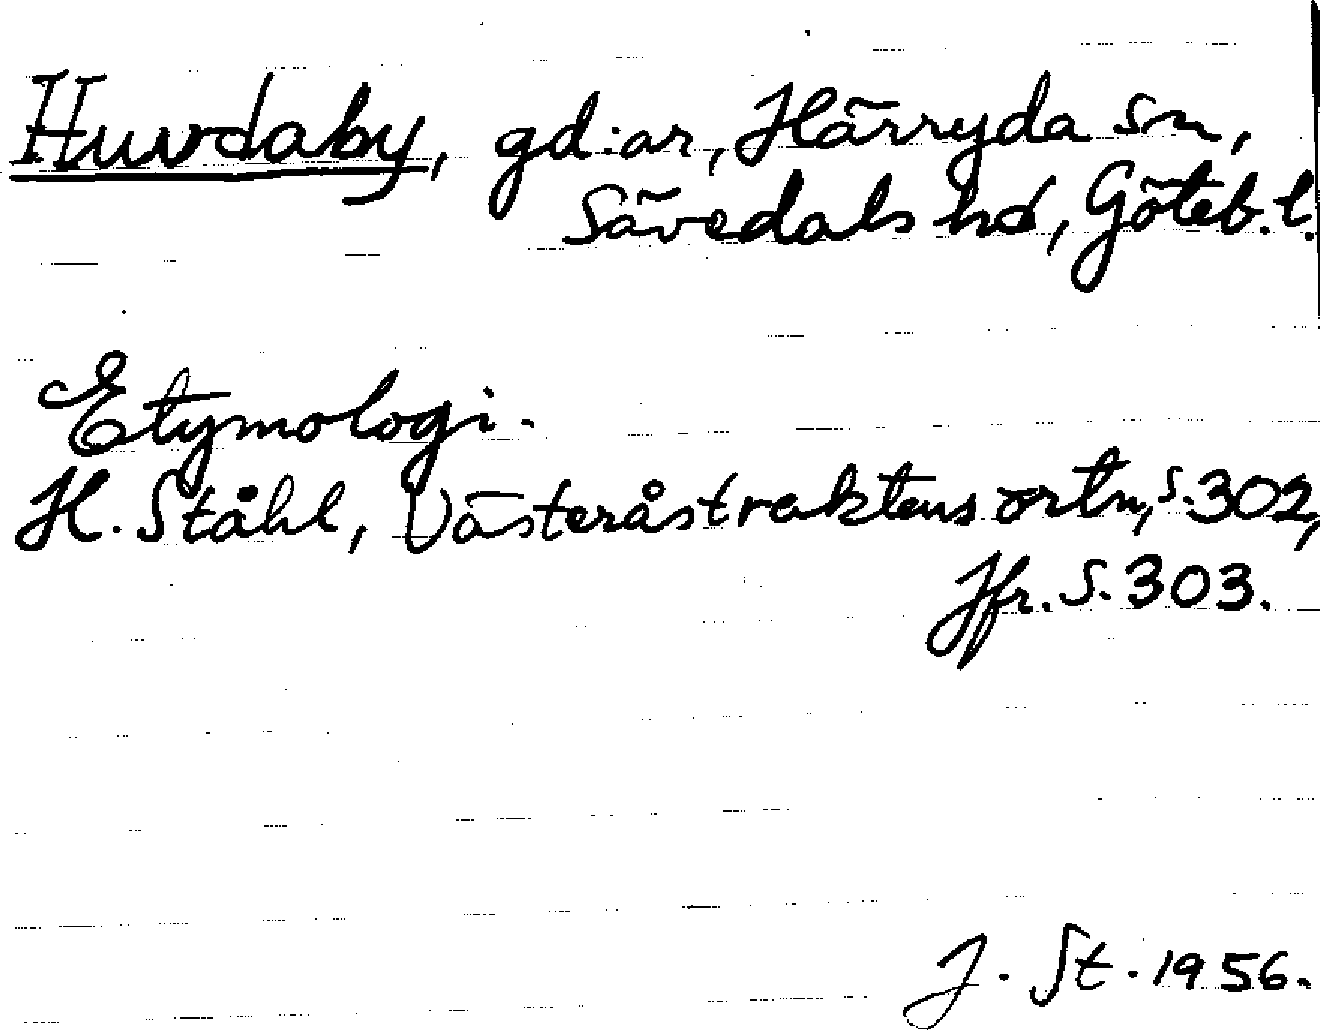 Huvdaby, gd:ar, Härryda sn,
Sävedals hd, Göteb. l.
Etymologi.
H. Ståhl, Västeråstraktens ortn, s. 302,
Jfr. s. 303.
J. St. 1956.